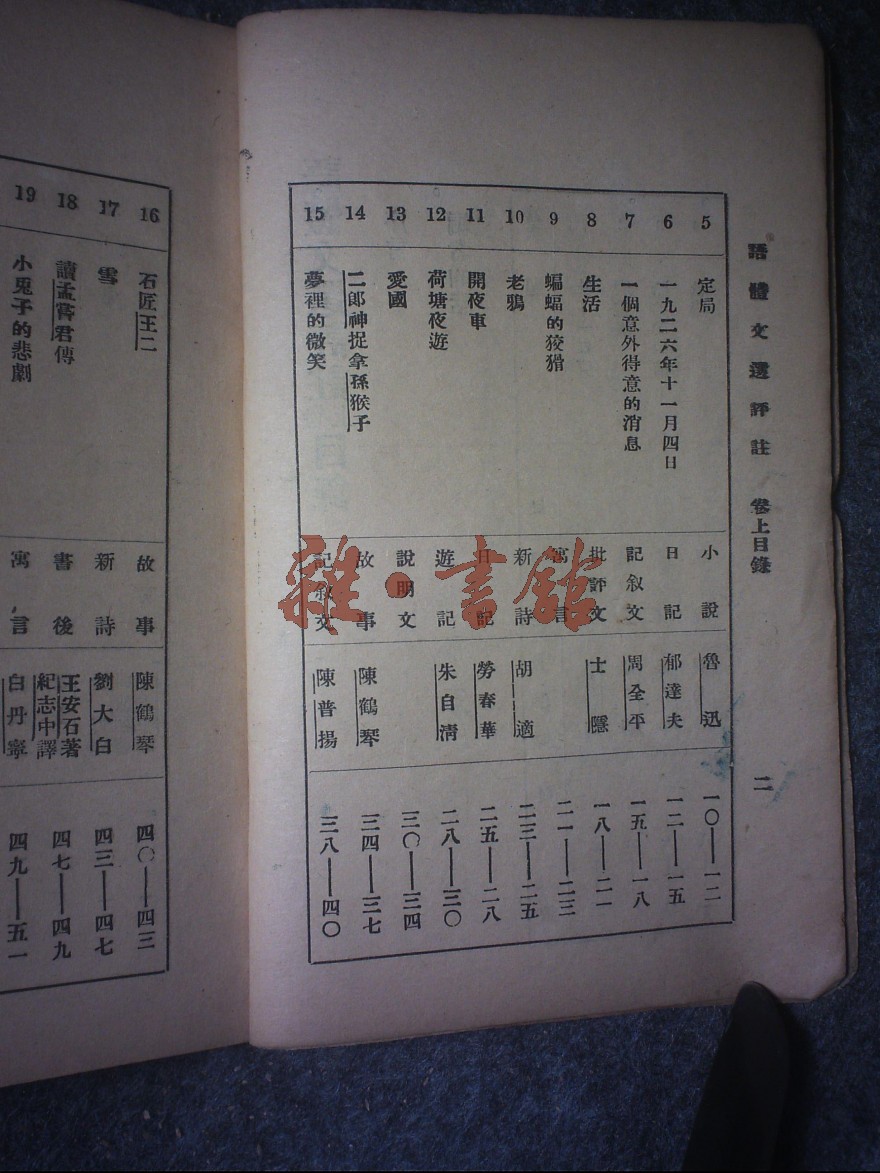 語體文選評註　卷上目錄　二
5　定局　小說　魯迅　一〇——一二
6　一九二六年十一月四日　日記　郁達夫　一二——一五
7　一個意外得意的消息　記叙文　周全平　一五——一八
8　生活　批評文　士隱　一八——二一
9　蝙蝠的狡猾　寓言　二一——二三
10　老鴉　新詩　胡適　二三——二五
11　開夜車　日記　勞春華　二五——二八
12　荷塘夜遊　遊記　朱自清　二八——三〇
13　愛國　說明文　三〇——三四
14　二郎神捉拿孫猴子　故事　陳鶴琴　三四——三七
15　夢裡的微笑　記叙文　陳普揚　三八——四〇
16　石匠王二　故事　陳鶴琴　四〇——四三
17　雪　新詩　劉大白　四三——四七
18　讀孟嘗君傳　書後　王安石著　紀志中譯　四七——四九
19　小兎子的悲劇　寓言　白丹寧　四九——五一
雜·書館